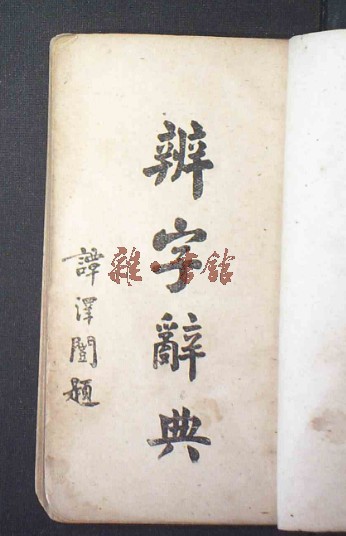 辨字辭典
譚澤闓題
雜·書館